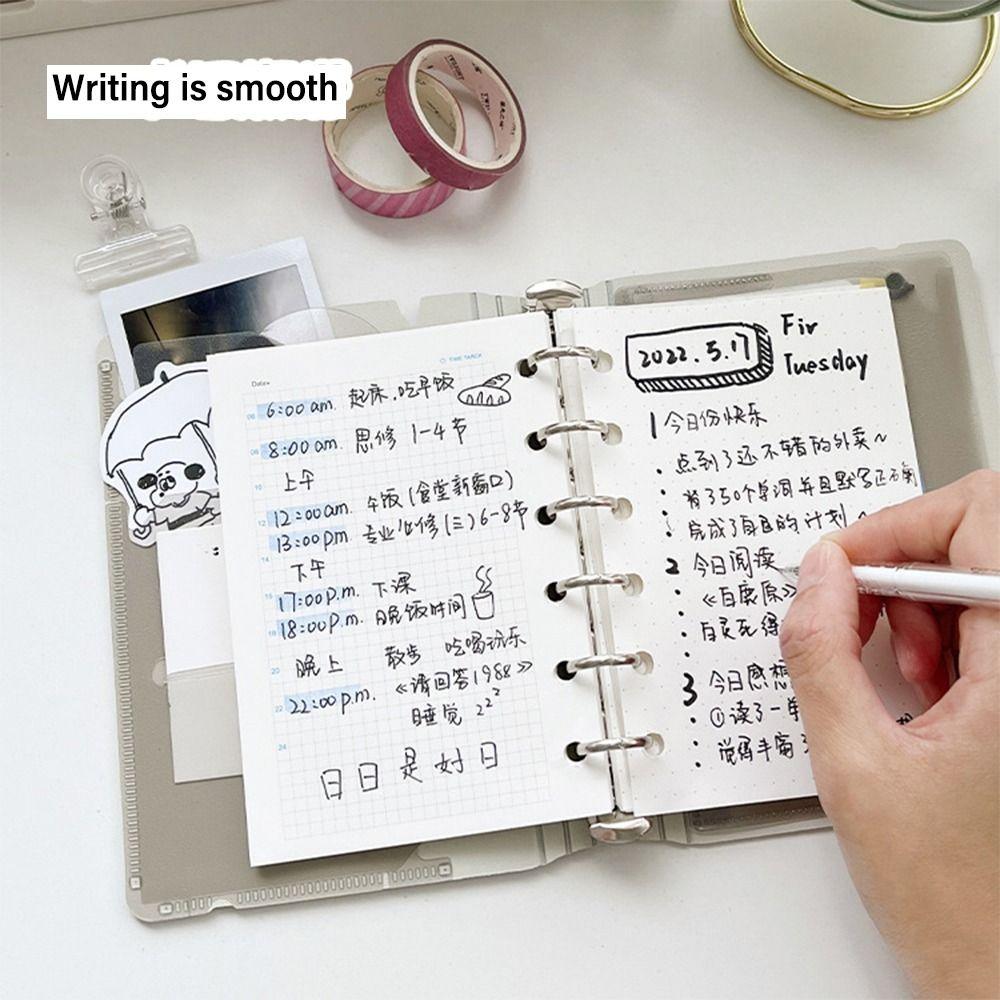 Writing is smooth
TIME TARCK
Date
06 6:00 am. 起床.吃早饭
08 8:00am. 思修 1-4节
10 上午
12 12:00am. 午饭(食堂新窗口)
13:00pm. 专业必修(三)6-8节
14 下午
17:00P.m. 下课
18 18:00P.m. 晚饭时间
20 晚上 散步 吃喝玩乐
22 22:00p.m. 《请回答1988》
睡觉 zz
24
日日是好日
2022.5.17 Fir
Tuesday
1 今日份快乐
· 点到了还不错的外卖~
· 背了50个单词并且默写还不
· 完成了自己的计划~
2 今日阅读
· 《白鹿原》
· 白灵死得
3 今日感想
· ①读了一
·